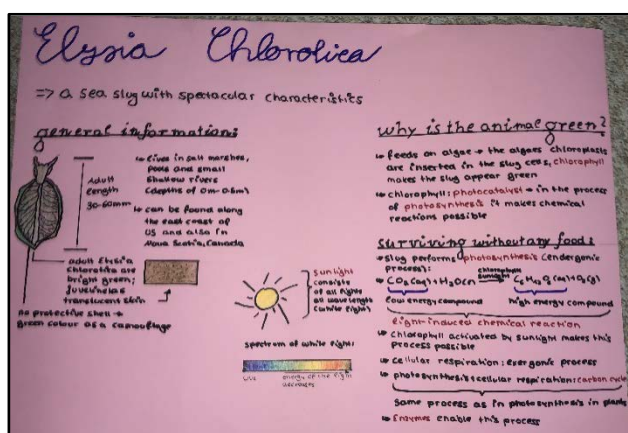 Elysia Chlorotica
=> a sea slug with spectacular characteristics
general information:
Adult
length
30-60mm
↳ lives in salt marshes,
pools and small
shallow rivers
(depths of 0m-0.5m)
↳ can be found along
the east coast of
US and also in
Nova Scotia, Canada
adult Elysia
Chlorotica are
bright green;
juveniles
translucent skin
no protective shell →
green colour as a camouflage
sunlight
consists
of all lights
all wavelength
(white light)
spectrum of white light:
energy of the light
decreases
why is the animal green?
↳ feeds on algae → the algaes chloroplasts
are inserted in the slug cells, chlorophyll
makes the slug appear green
↳ chlorophyll: photocatalyst → in the process
of photosynthesis it makes chemical
reactions possible
surviving without any food:
↳ slug performs photosynthesis (endergonic
process):
chlorophyll
sunlight
low energy compound
high energy compound
light-induced chemical reaction
↳ chlorophyll activated by sunlight makes this
process possible
↳ cellular respiration: exergonic process
↳ photosynthesis & cellular respiration: carbon cycle
same process as in photosynthesis in plants
↳ Enzymes enable this process